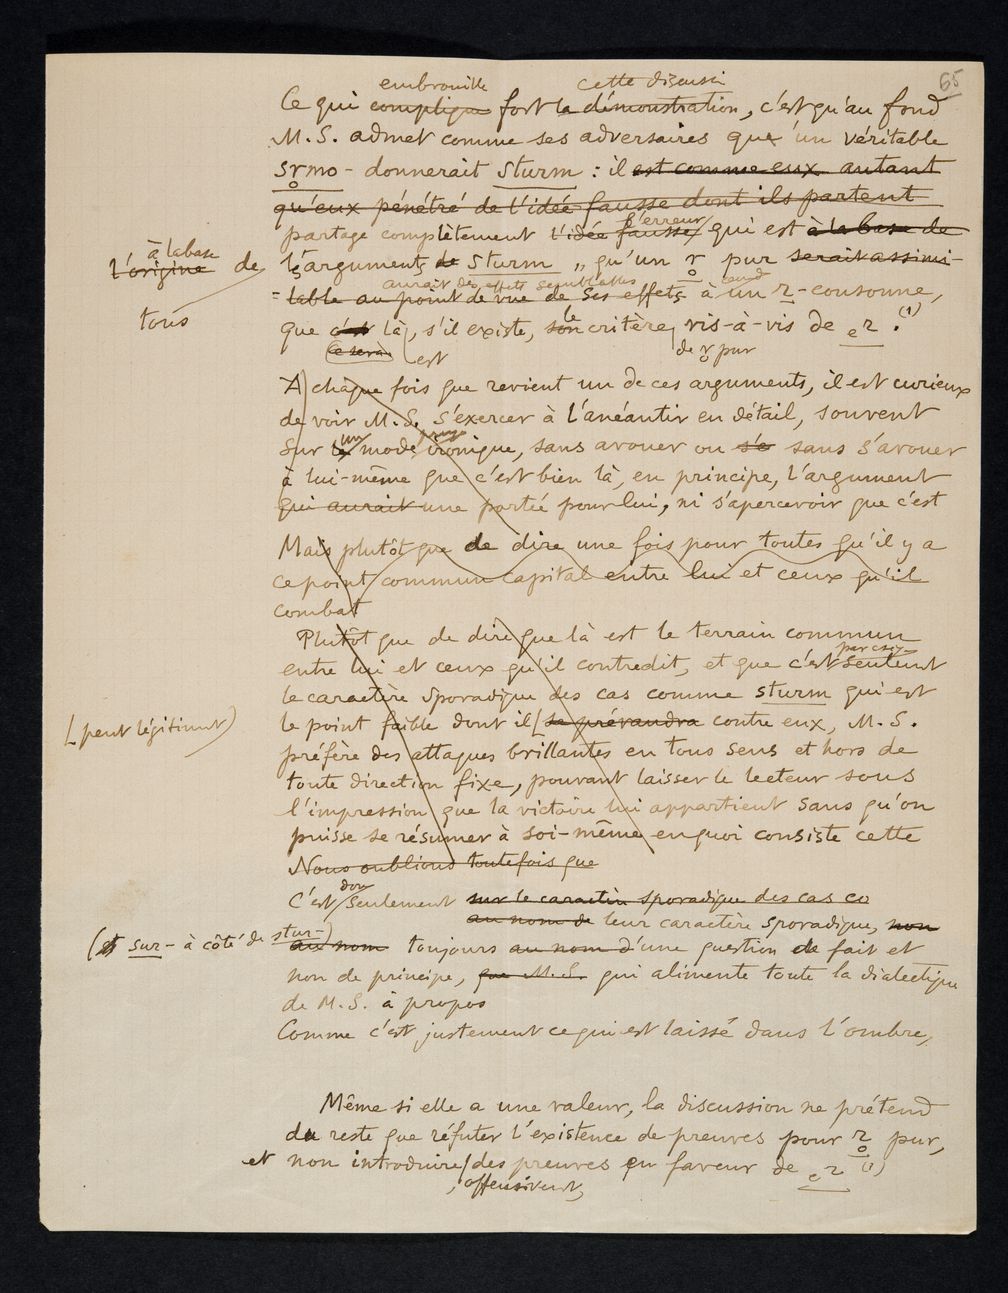 65
embrouille cette discussi
Ce qui complique fort la démonstration, c'est qu'au fond
M. S. admet comme ses adversaires que un véritable
srmo- donnerait sturm : il est comme eux autant
qu'eux pénétré de l'idée fausse dont ils partent
l'erreur
partage complètement l'idée fausse qui est à la base de
à la base
l'origine de
tous
les arguments de sturm „ qu'un r pur serait assimi-
aurait des effets semblables
= table au point de vue de ses effets à un r-consonne,
que c'est là, s'il existe, son le critère vis-à-vis de er. (1)
ce serait est de r pur
A chaque fois que revient un de ces arguments, il est curieux
de voir M. S. s'exercer à l'anéantir en détail, souvent
un
sur le mode ironique, sans avouer ou s'a sans s'avouer
à lui-même que c'est bien là, en principe, l'argument
qui aurait une portée pour lui, ni s'apercevoir que c'est
Mais plutôt que de dire une fois pour toutes qu'il y a
ce point commun capital entre lui et ceux qu'il
combat
Plutôt que de dire que là est le terrain commun
entre lui et ceux qu'il contredit, et que c'est seulement
le caractère sporadique des cas comme sturm qui est
(peut légitimnt)
le point faible dont il se prévaudra contre eux, M. S.
préfère des attaques brillantes en tous sens et hors de
toute direction fixe, pouvant laisser le lecteur sous
l'impression que la victoire lui appartient sans qu'on
puisse se résumer à soi-même en quoi consiste cette
Nous oublions toutefois que
don
C'est seulement sur le caractère sporadique des cas co
au nom de leur caractère sporadique, non
(st sur- à côté de stur-)
au nom toujours au nom d'une question de fait et
non de principe, que M. S. qui alimente toute la dialectique
de M. S. à propos
Comme c'est justement ce qui est laissé dans l'ombre,
Même si elle a une valeur, la discussion ne prétend
du reste que réfuter l'existence de preuves pour r pur,
et non introduire des preuves en faveur de er (1)
offensivent,